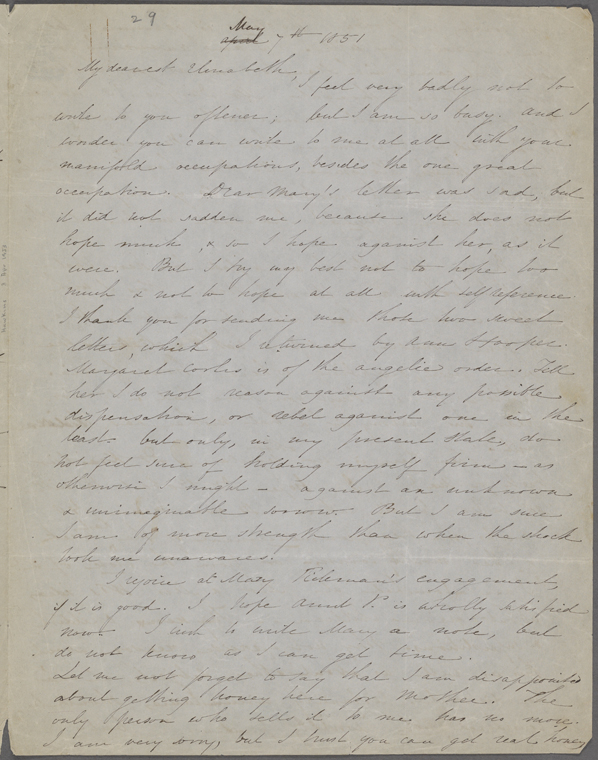 29
May
april 7th 1851
My dearest Elizabeth,
I feel very badly not to
write to you oftener; but I am so busy. And I
wonder you can write to me at all with your
manifold occupations, besides the one great
occupation. Dear Mary's letter was sad, but
it did not sadden me, because she does not
hope much, & so I hope against her, as it
were. But I try my best not to hope too
much & not to hope at all with self reference.
I thank you for sending me those two sweet
letters, which I returned by Ann Hooper.
Margaret Corlis is of the angelic order. Tell
her I do not reason against any possible
dispensation, or rebel against one in the
least but only, in my present state, do
not feel sure of holding myself firm — as
otherwise I might — against an unknown
& unimaginable sorrow. But I am sure
I am of more strength than when the shock
took me unawares.
I rejoice at Mary engagement,
if it is good. I hope aunt P. is wholly
now. I wish to write Mary a note, but
do not know as I can get time.
Let me not forget to say that I am disappointed
about getting honey here for Mother. The
only person who sells it to me has no more.
I am very sorry, but I trust you can get real honey